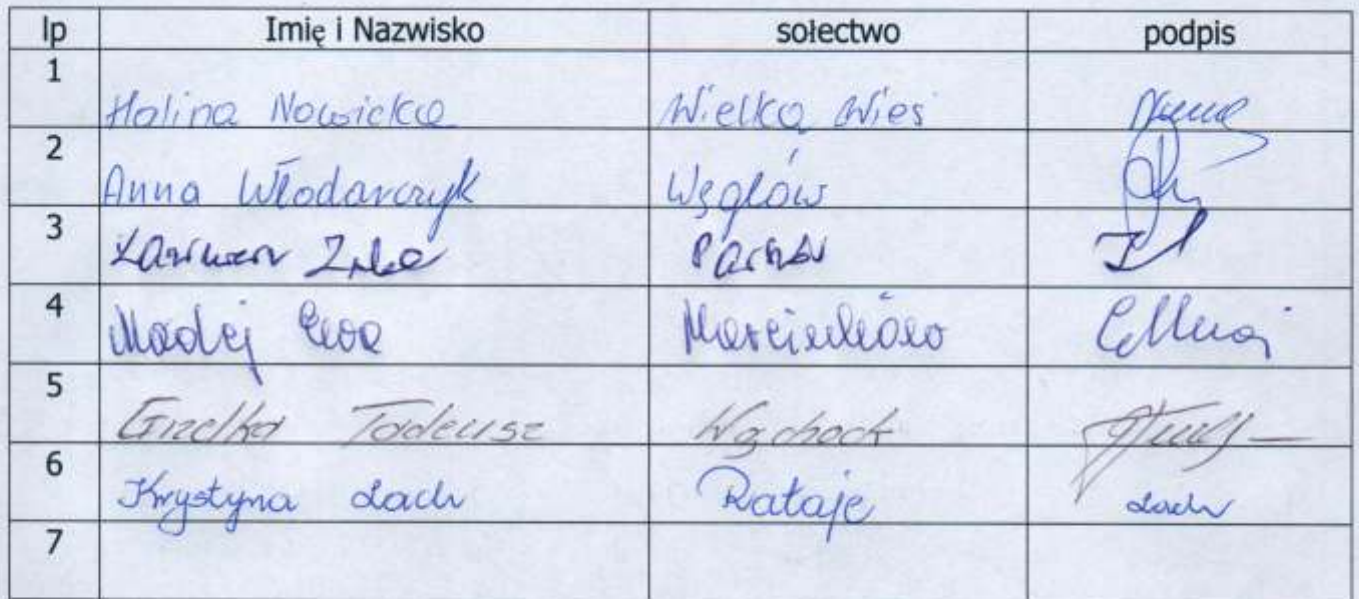 lp Imię i Nazwisko sołectwo podpis
1 Halina Nowicka Wielka Wieś
2 Anna Włodarczyk Węglów
3 Parszów
4 Madej Ewa Marcinków
5 Grzelka Tadeusz Wąchock
6 Krystyna Lach Rataje Lach
7